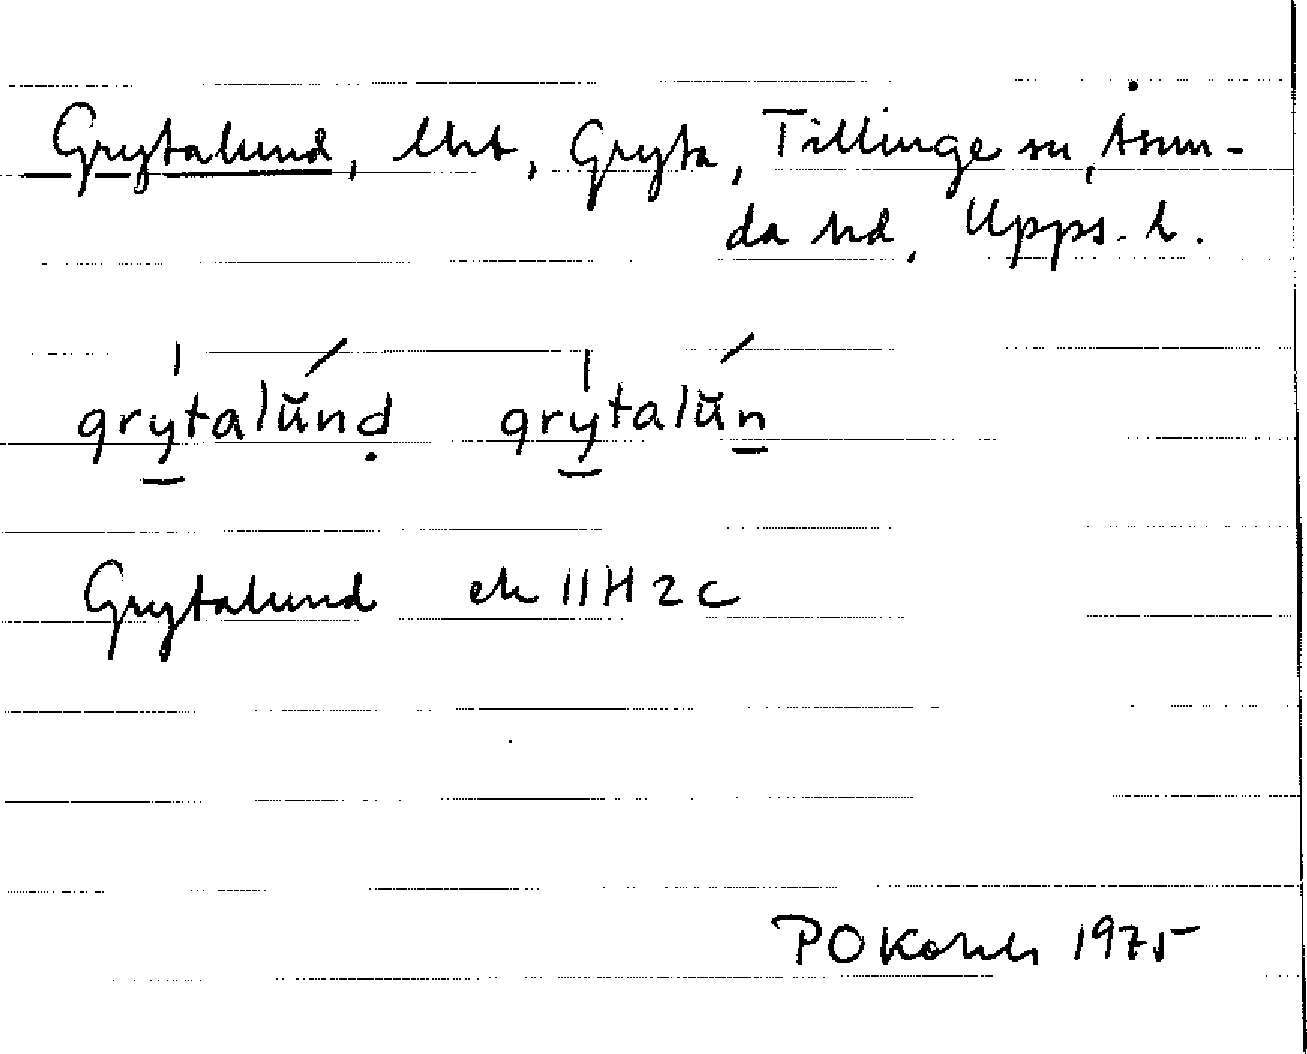 Grytalund, lht, Gryta, Tillinge sn, Åsun-
da hd, Upps. l.
grytalŭnd grytalŭn
Grytalund ek 11H 2c
PO 1975